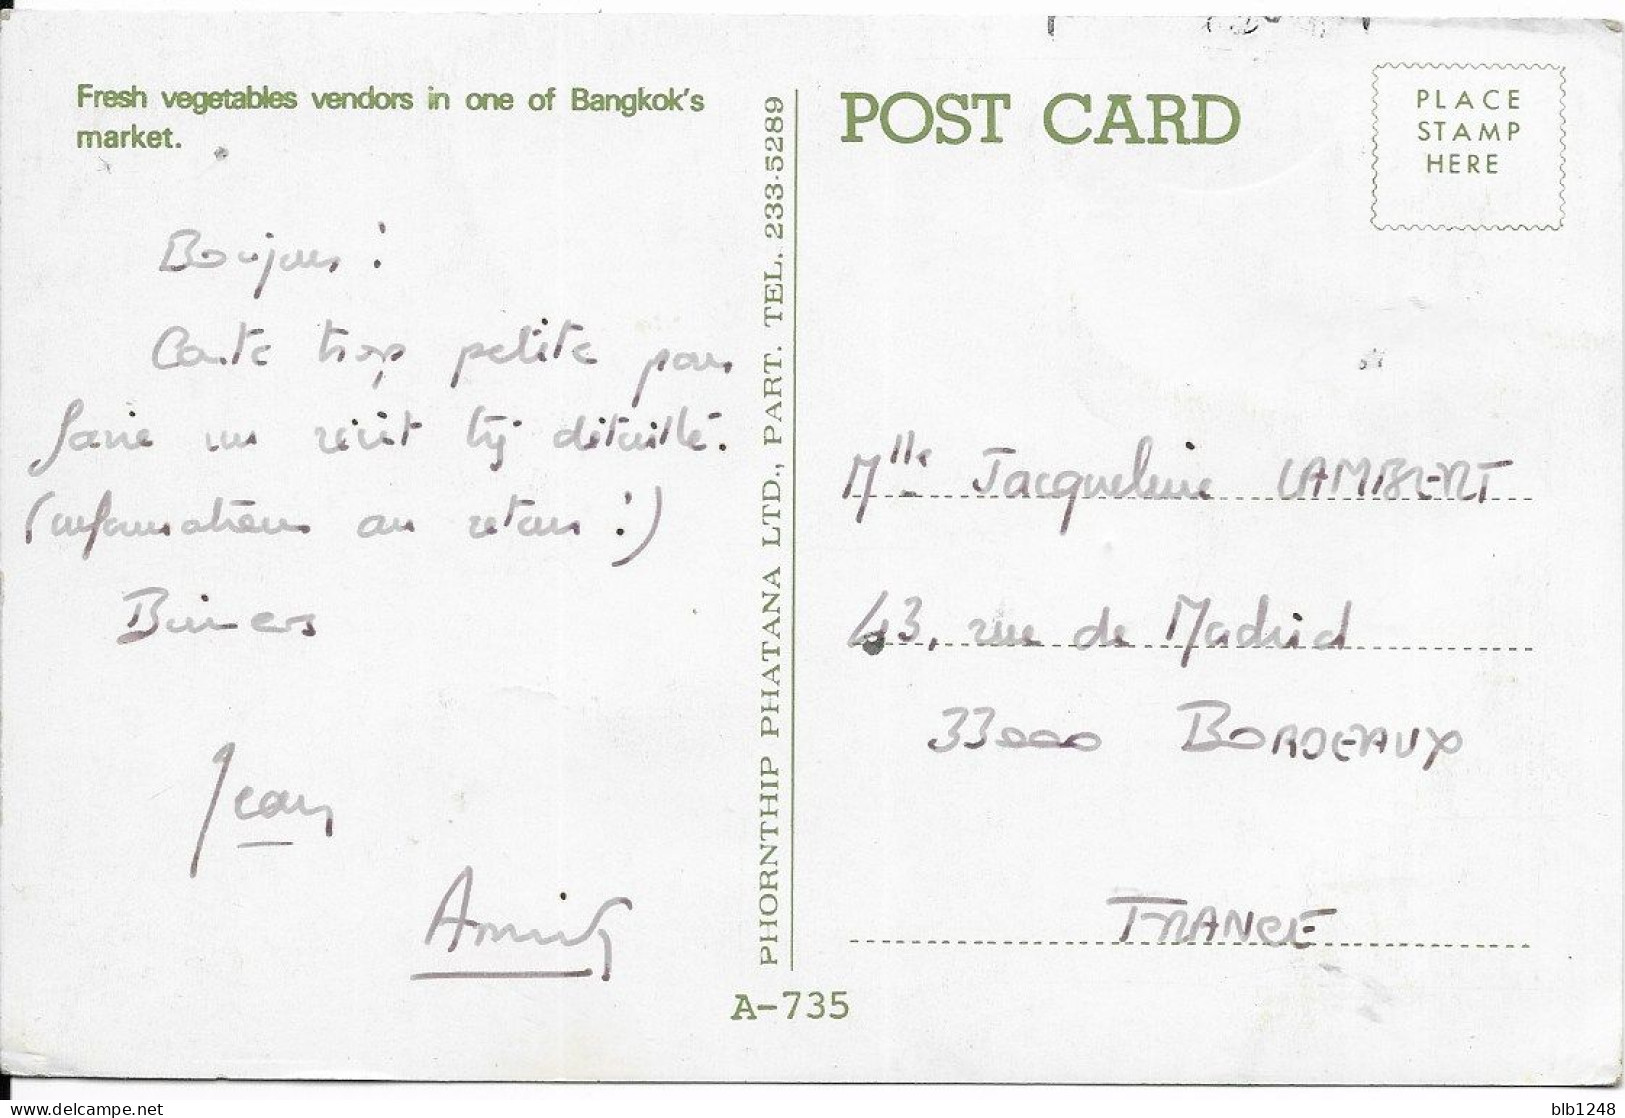 Fresh vegetables vendors in one of Bangkok's
market.
Boujour !
Carte trop petite pour
faire un récit très détaillé.
(informations au retour !)
Bises
Jean
PHORNTHIP PHATANA LTD., PART. TEL. 233-5289
A-735
POST CARD
PLACE
STAMP
HERE
Mlle Jacqueline LAMBERT
43, rue de Madrid
33000 BORDEAUX
FRANCE
blb1248